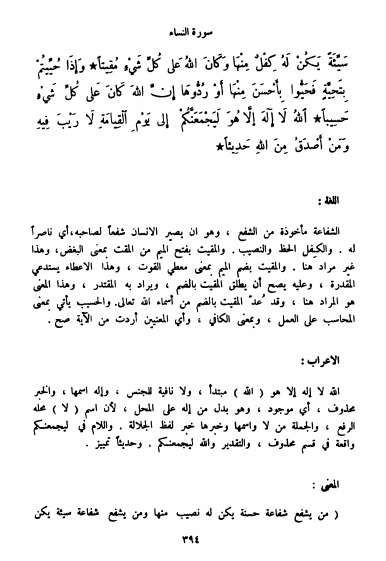 سورة النساء
سَيِّئَةً يَكُنْ لَهُ كِفْلٌ مِنْهَا وَكَانَ اللهُ عَلى كُلِّ شَيْءٍ مُقِيتاً★ وَإِذَا حُيِّيتُمْ
بِتَحِيَّةٍ فَحَيُّوا بِأَحْسَنَ مِنْهَا أَوْ رُدُّوهَا إِنَّ اللهَ كَانَ عَلى كُلِّ شَيْءٍ
حَسِيباً★ اَللهُ لَا إِلَهَ إِلَّا هُوَ لَيَجْمَعَنَّكُمْ إِلَى يَوْمِ الْقِيَامَةِ لَا رَيْبَ فِيهِ
وَمَنْ أَصْدَقُ مِنَ اللهِ حَدِيثاً★
اللغة :
الشفاعة مأخوذة من الشفع ، وهو ان يصير الانسان شفعاً لصاحبه،أي ناصراً
له . والكِفل الحظ والنصيب . والمَقيت بفتح الميم من المقت بمعنى البغض، وهذا
غير مراد هنا . والمقيت بضم الميم بمعنى معطي القوت ، وهذا الاعطاء يستدعي
المقدرة ، وعليه يصح أن يطلق المقيت بالضم ، ويراد به المقتدر ، وهذا المعنى
هو المراد هنا ، وقد عُدّ المقيت بالضم من أسماء الله تعالى. والحسيب يأتي بمعنى
المحاسب على العمل ، وبمعنى الكافي ، وأي المعنيين أردت من الآية صح .
الاعراب :
الله لا إله إلا هو ( الله ) مبتدأ ، ولا نافية للجنس ، وإله اسمها ، والخبر
محذوف ، أي موجود ، وهو بدل من إله على المحل ، لأن اسم ( لا ) محله
الرفع ، والجملة من لا واسمها وخبرها خبر لفظ الجلالة . واللام في ليجمعنكم
واقعة في قسم محذوف ، والتقدير والله ليجمعنكم . وحديثاً تمييز .
المعنى :
( من يشفع شفاعة حسنة يكن له نصيب منها ومن يشفع شفاعة سيئة يكن
٣٩٤